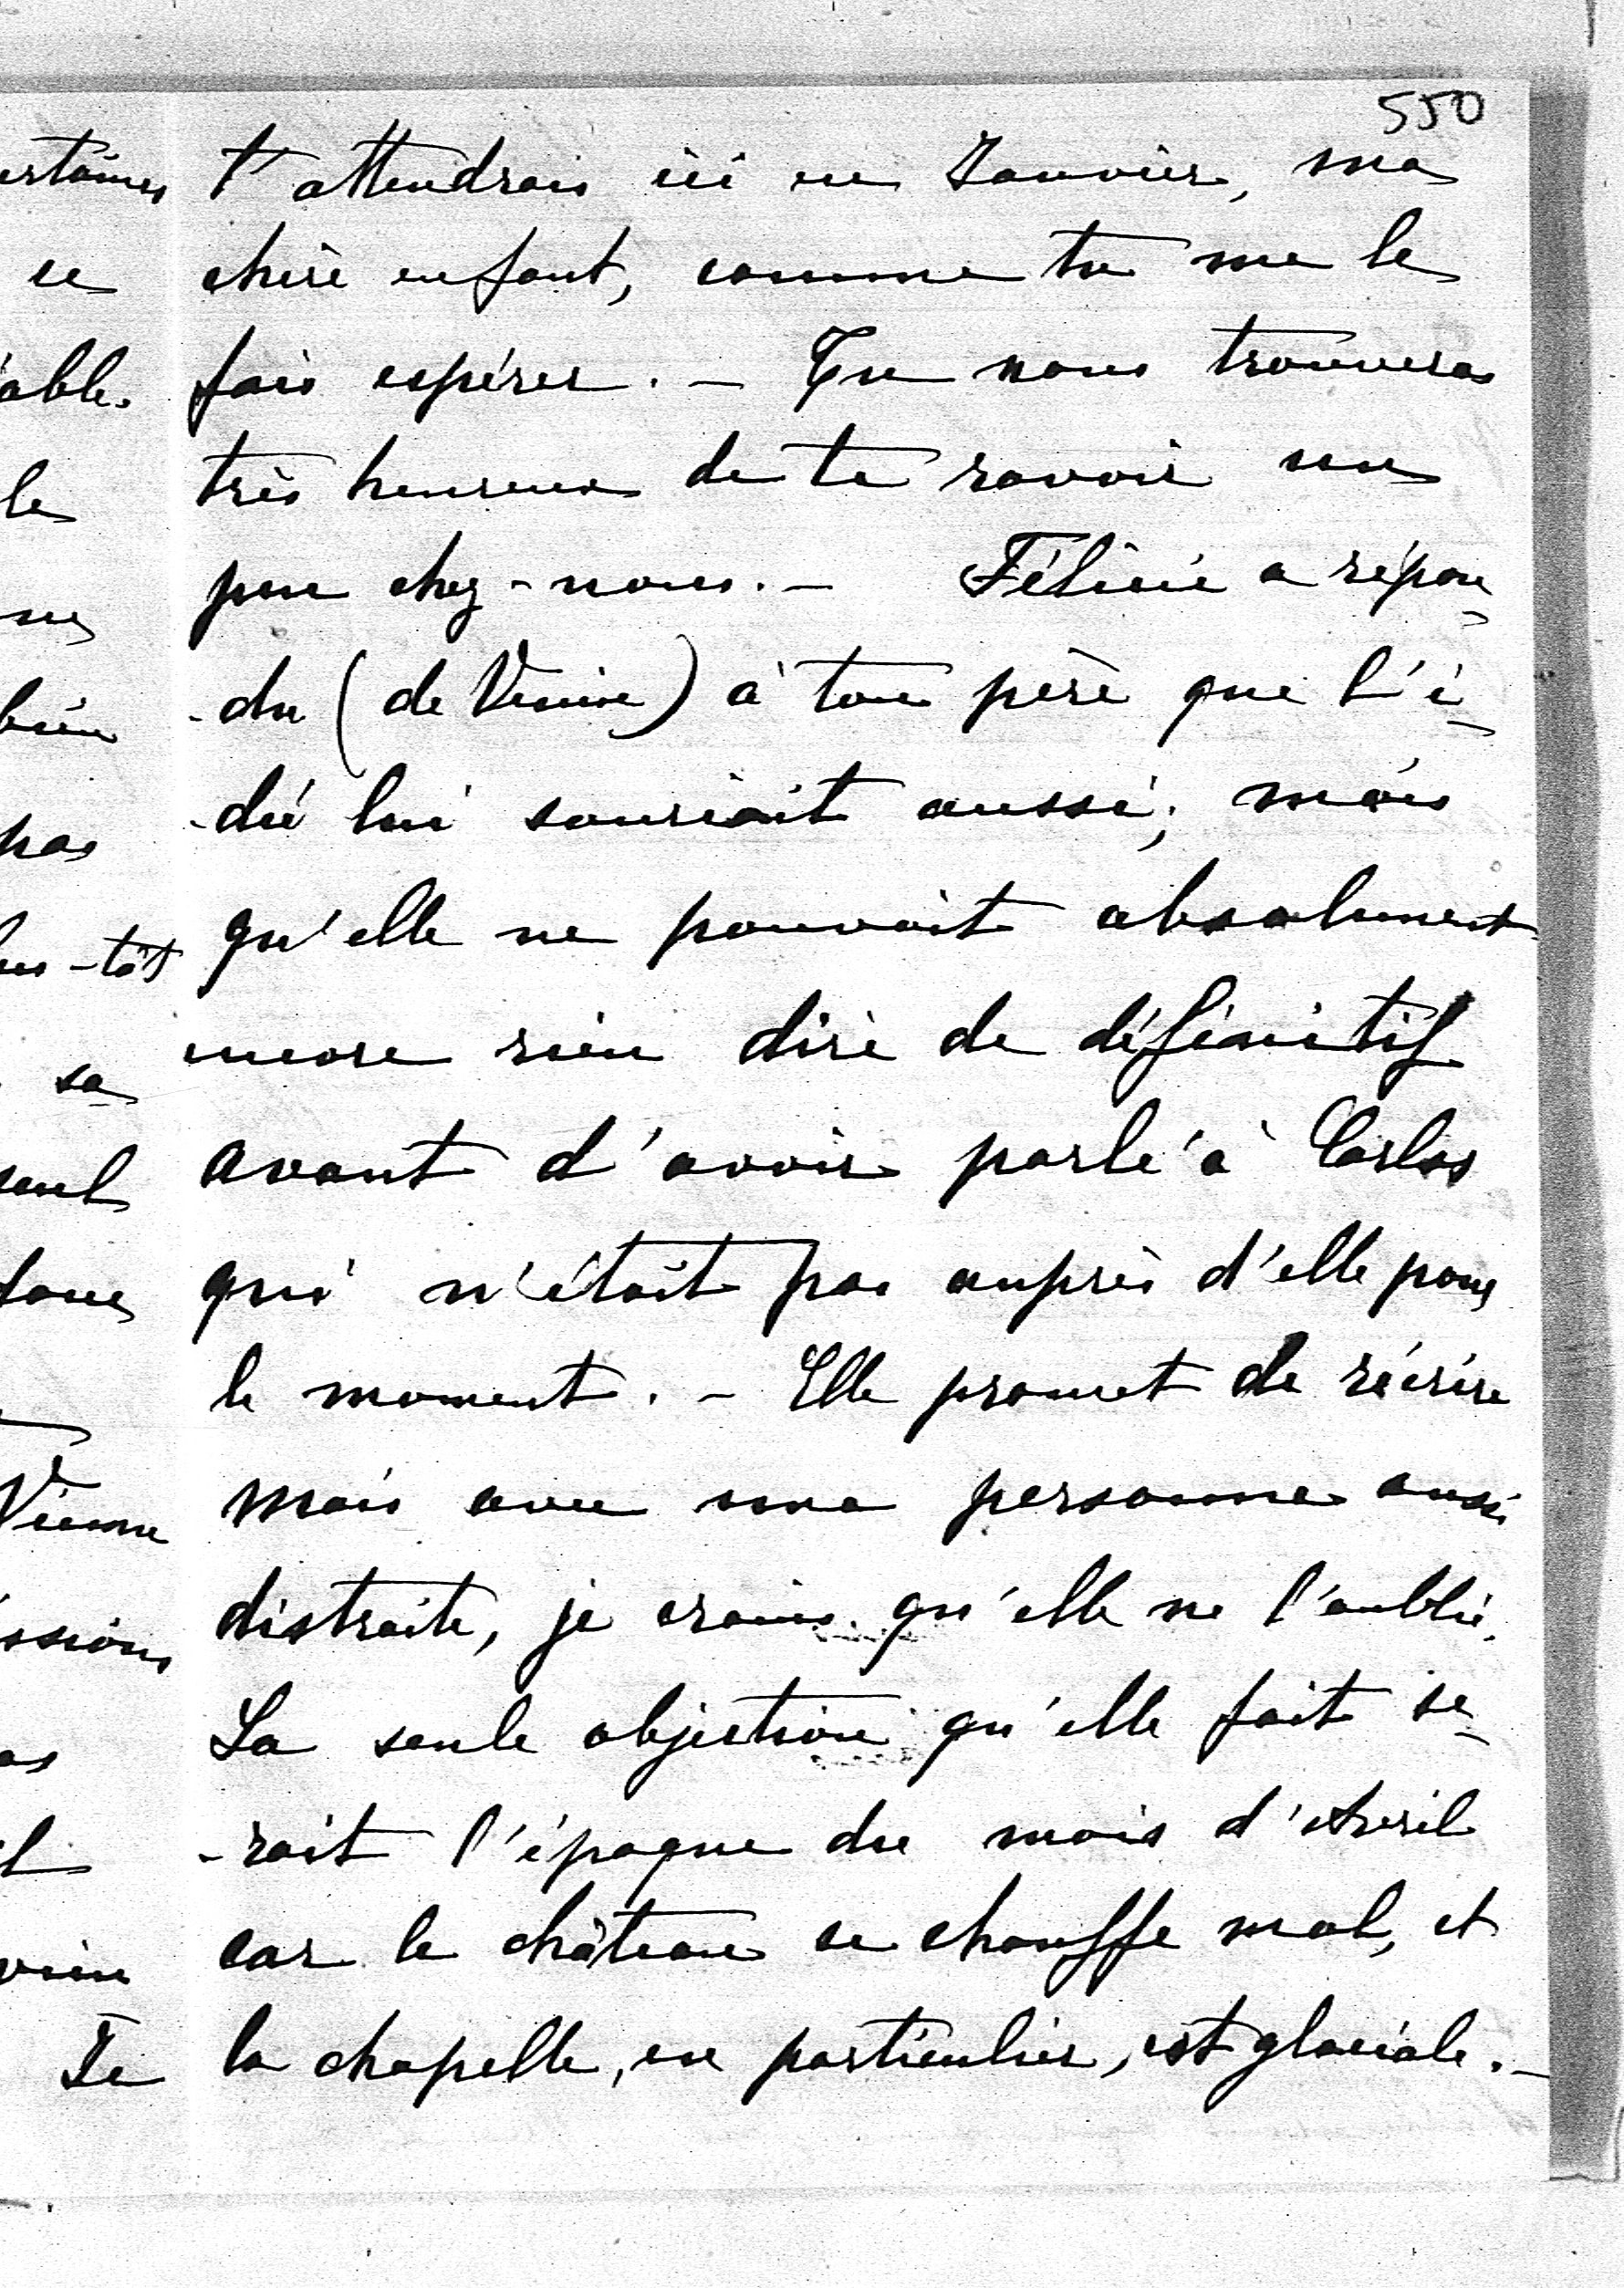 550
t'attendrais ici en Janvier, ma
chère enfant, comme tu me le
fais espérer. – Tu nous trouveras
très heureux de te ravoir un
peu chez-nous. – Félicie a répon-
-du (de Venise) à ton père que l'i-
-dée lui souriait aussi; mais
qu'elle ne pouvait absolument
encore rien dire de définitif
avant d'avoir parlé à Carlos
qui n'était pas auprès d'elle pour
le moment. – Elle promet de récrire
mais avec une personne aussi
distraite, je crains qu'elle ne l'oublie.
La seule objection qu'elle fait se-
-rait l'époque du mois d'Avril
car le château se chauffe mal, et
la chapelle, en particulier, est glaciale. –
ce
able.
le
bien
pas
-tôt
sa
seul
Vienne
Je